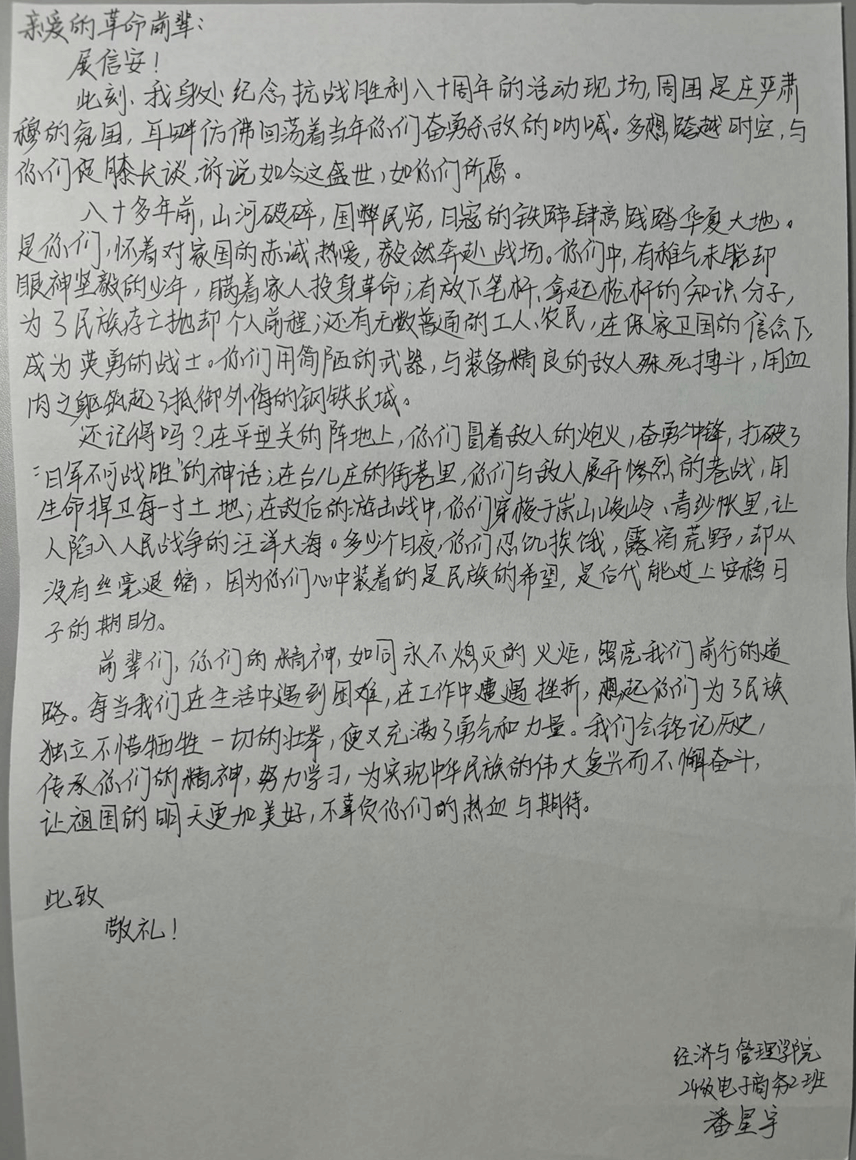 亲爱的革命前辈：
展信安！
此刻、我身处纪念抗战胜利八十周年的活动现场，周围是庄严肃
穆的氛围，耳畔仿佛回荡着当年你们奋勇杀敌的呐喊。多想跨越时空，与
你们促膝长谈，诉说如今这盛世，如你们所愿。
八十多年前，山河破碎，国弊民穷，日寇的铁蹄肆意践踏华夏大地。
是你们，怀着对家国的赤诚热爱，毅然奔赴战场。你们中，有稚气未脱却
眼神坚毅的少年，瞒着家人投身革命；有放下笔杆、拿起枪杆的知识分子，
为了民族存亡抛却个人前程；还有无数普通的工人、农民，在保家卫国的信念下，
成为英勇的战士。你们用简陋的武器，与装备精良的敌人殊死搏斗，用血
肉之躯筑起了抵御外侮的钢铁长城。
还记得吗？在平型关的阵地上，你们冒着敌人的炮火，奋勇冲锋，打破了
“日军不可战胜”的神话；在台儿庄的街巷里，你们与敌人展开惨烈的巷战，用
生命捍卫每一寸土地；在敌后的游击战中，你们穿梭于崇山峻岭、青纱帐里，让
人陷入人民战争的汪洋大海。多少个日夜，你们忍饥挨饿，露宿荒野，却从
没有丝毫退缩，因为你们心中装着的是民族的希望，是后代能过上安稳日
子的期盼。
前辈们，你们的精神，如同永不熄灭的火炬，照亮我们前行的道
路。每当我们在生活中遇到困难，在工作中遭遇挫折，想起你们为了民族
独立不惜牺牲一切的壮举，便又充满了勇气和力量。我们会铭记历史，
传承你们的精神，努力学习，为实现中华民族的伟大复兴而不懈奋斗，
让祖国的明天更加美好，不辜负你们的热血与期待。
此致
敬礼！
经济与管理学院
24级电子商务2班
潘星宇